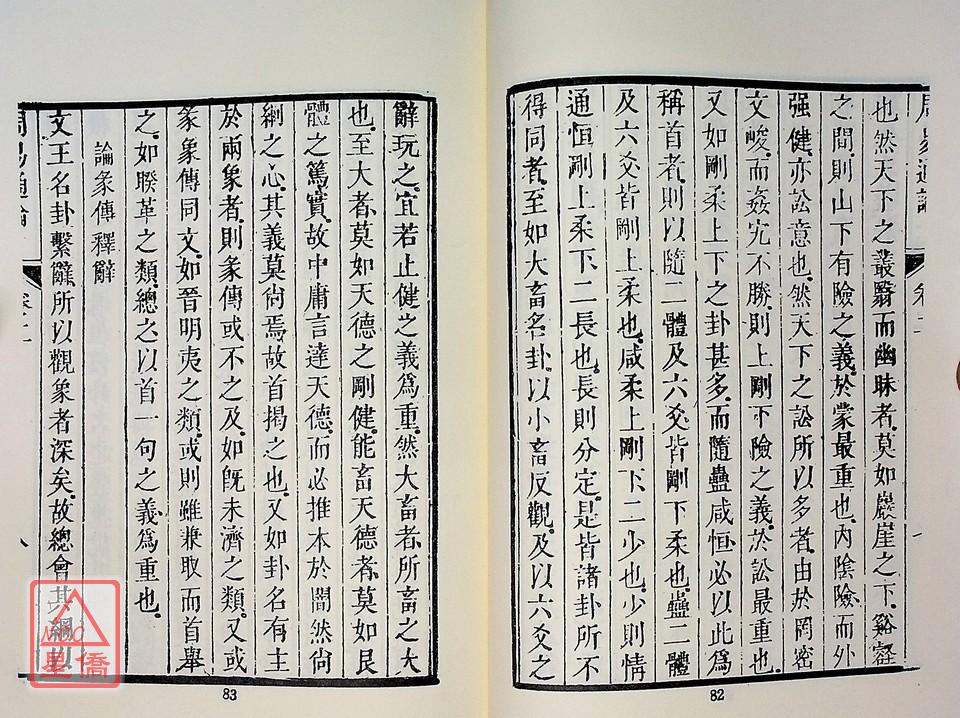 也然天下之叢翳而幽昧者莫如巖崖之下谿壑
之間則山下有險之義於蒙最重也內陰險而外
强健亦訟意也然天下之訟所以多者由於罔密
文峻而姦宄不勝則上剛下險之義於訟最重也
又如剛上柔上下之卦甚多而隨蠱咸恒必以此爲
稱首者則以隨二體及六爻皆剛下柔也蠱二體
及六爻皆剛上柔也咸柔上剛下二少也少則情
通恒剛上柔下二長也長則分定是皆諸卦所不
得同者至如大畜名卦以小畜反觀及以六爻之
82
辭玩之宜若止健之義爲重然大畜者所畜之大
也至大者莫如天德之剛健能畜天德者莫如艮
體之篤實故中庸言達天德而必推本於闇然尙
絅之心其義莫尙焉故首揭之也又如卦名有主
於兩象者則彖傳或不之及如旣未濟之類又或
彖象傳同文如晉明夷之類或則雖兼取而首舉
之如睽革之類總之以首一句之義爲重也
論彖傳釋辭
文王名卦繫辭所以觀象者深矣故總會其綱以
周易通論
卷二
八
83
MC
星僑